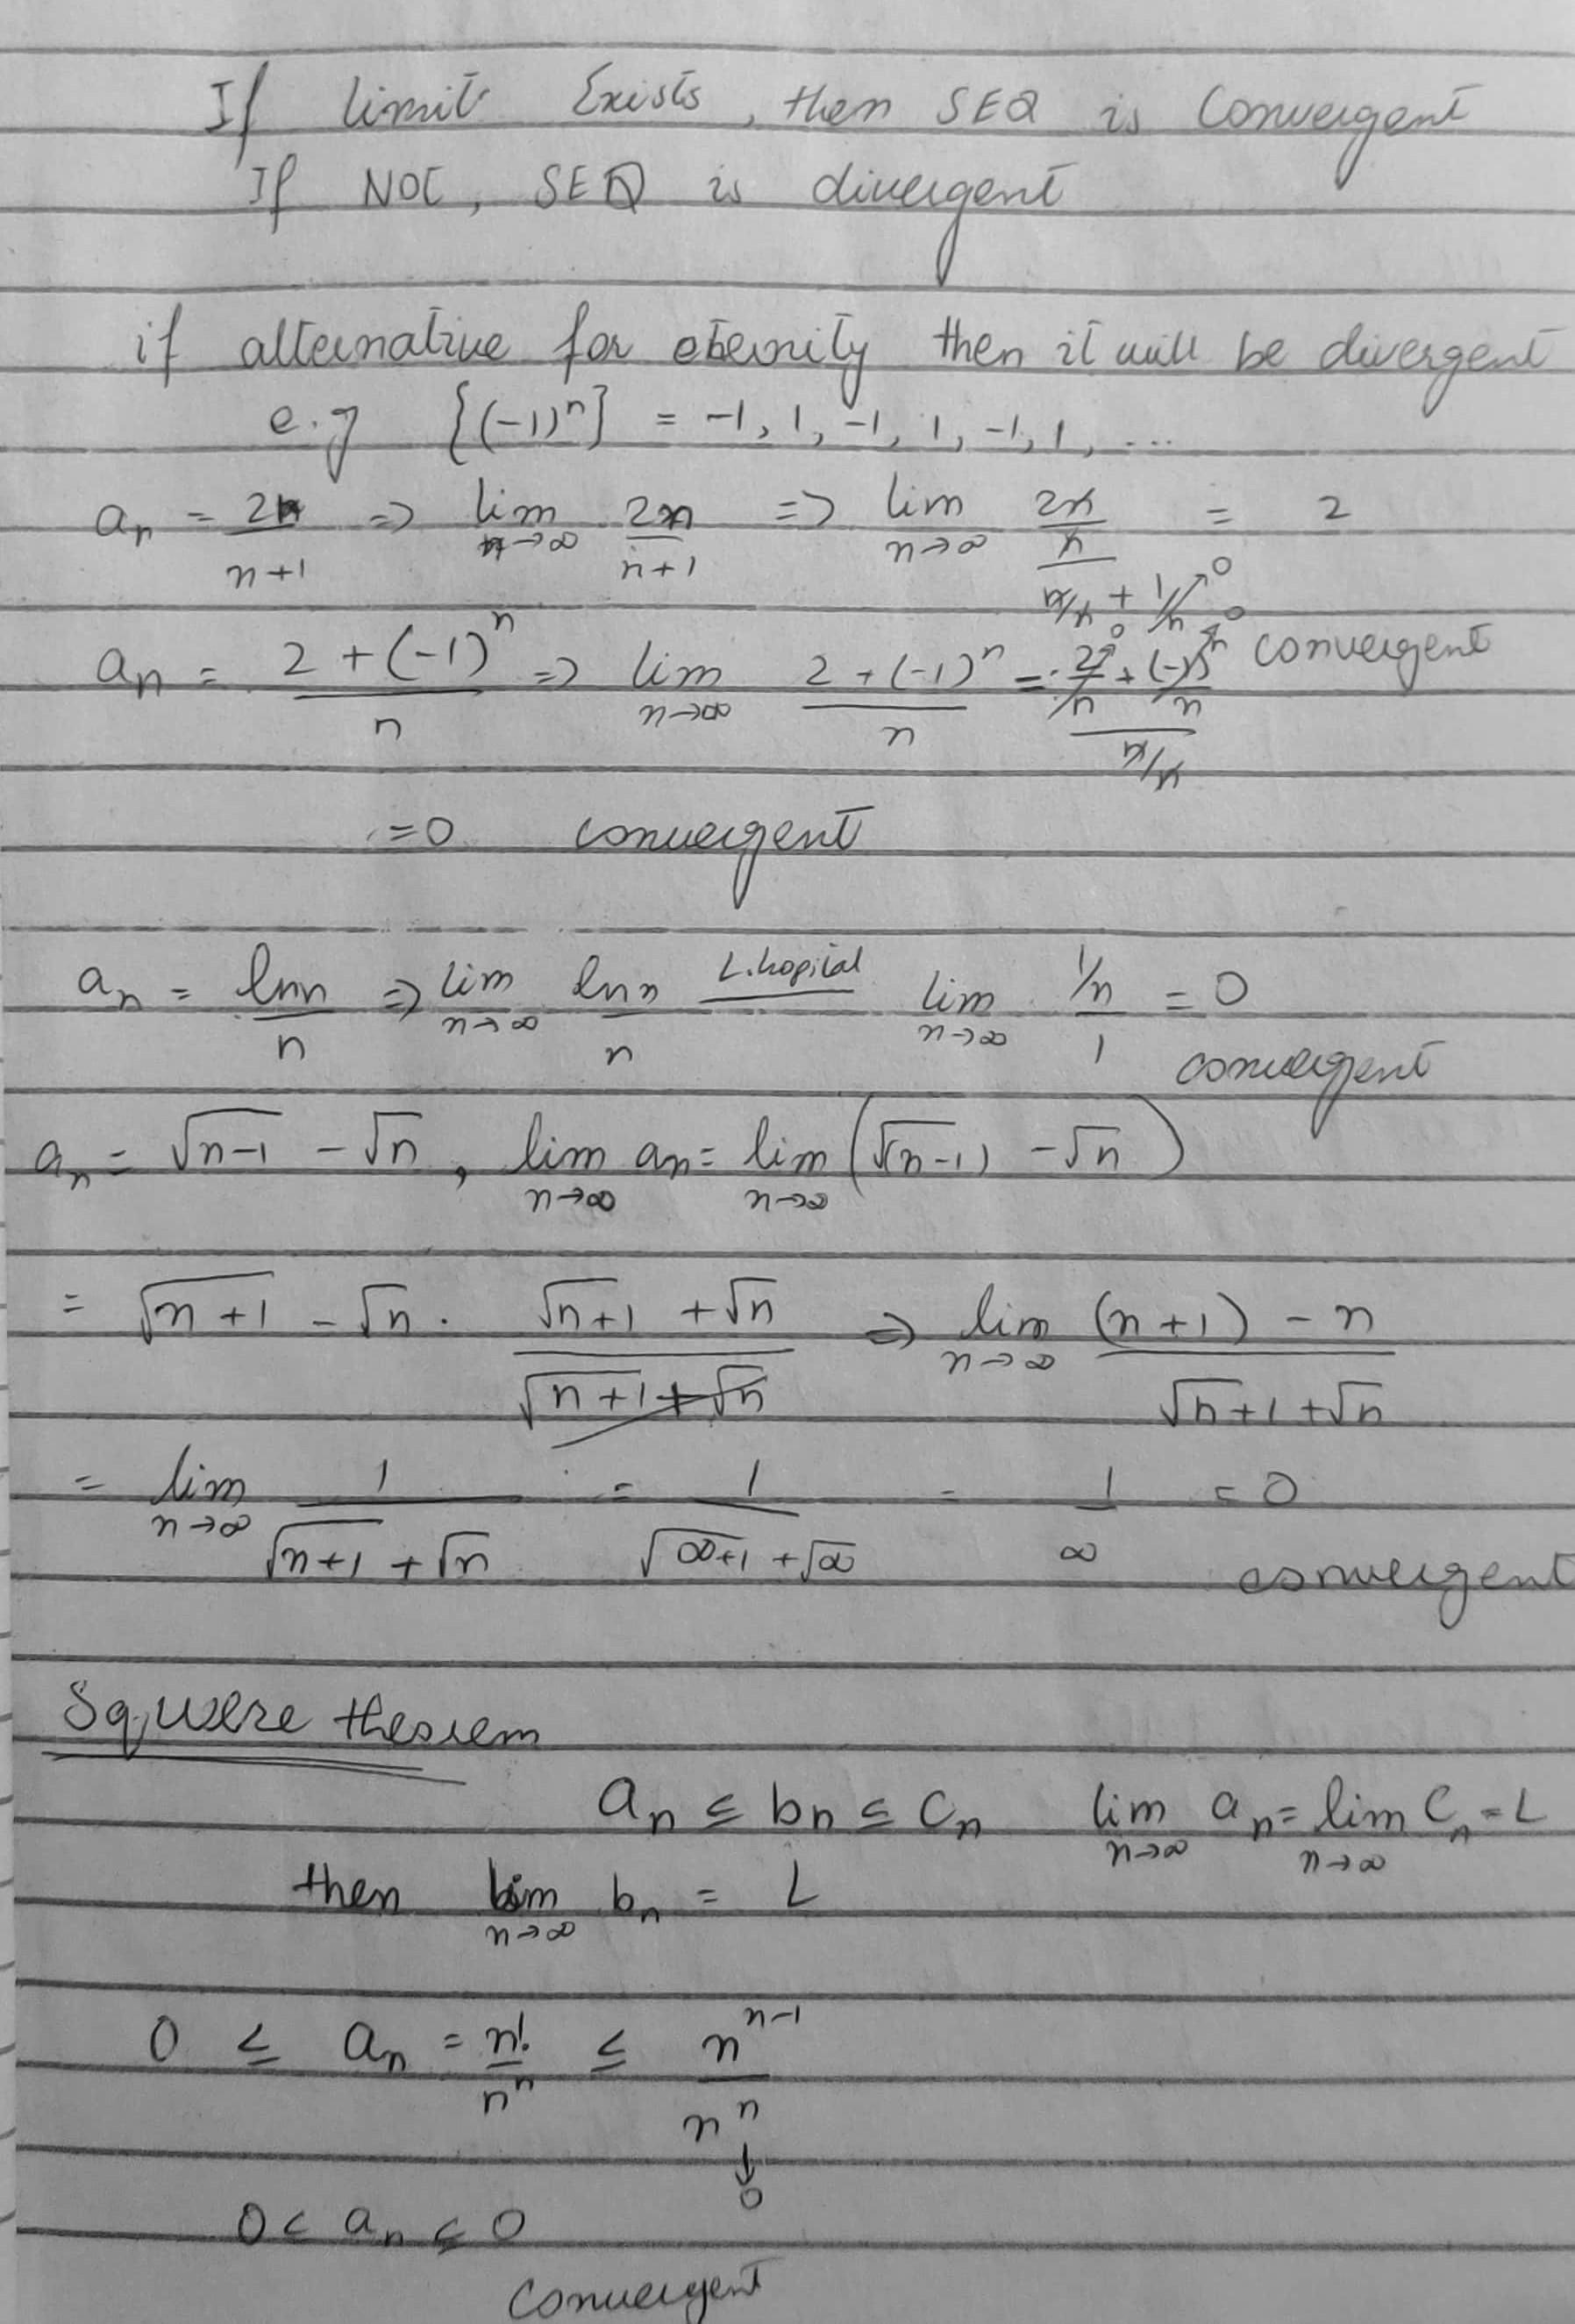 If limit Exists, then SEQ is Convergent
If NOT, SEQ is divergent
if alternative for eternity then it will be divergent
e.g {(-1)^n} = -1, 1, -1, 1, -1, 1, ...
a_n = 2n/(n+1) => lim n→∞ 2n/(n+1) => lim n→∞ (2n/n)/(n/n + 1/n→0) = 2
convergent
a_n = (2+(-1)^n)/n => lim n→∞ (2+(-1)^n)/n = (2/n→0 + (-1)^n/n→0)/(n/n)
=0 convergent
a_n = ln n/n => lim n→∞ ln n/n L.hopital lim n→∞ (1/n)/1 = 0
convergent
a_n = √(n-1) - √n, lim n→∞ a_n = lim n→∞ (√(n-1) - √n)
= √(n+1) - √n . (√(n+1) + √n)/(√(n+1) + √n) => lim n→∞ ((n+1) - n)/(√(n+1) + √n)
= lim n→∞ 1/(√(n+1) + √n) = 1/(√(∞+1) + √∞) = 1/∞ = 0
convergent
theorem
a_n ≤ b_n ≤ C_n lim n→∞ a_n = lim n→∞ C_n = L
then lim n→∞ b_n = L
0 ≤ a_n = n!/n^n ≤ n^(n-1)/n^n
↓
0
0 < a_n ≤ 0
Convergent